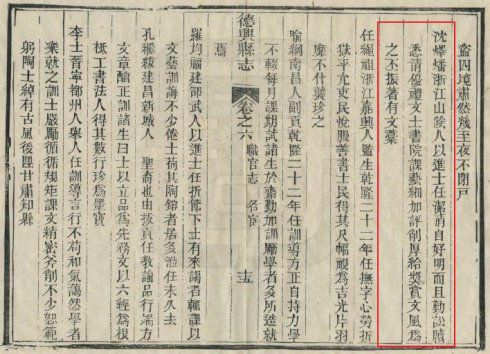 盜四境肅然幾至夜不閉戶
沈浙江山陰人以進士任潔廉自好明而且勤訟牘
悉清優禮文士書院課藝細加評削厚給獎賞文風為
之丕振著有文藁
任繩祖浙江嘉興人監生乾隆二十二年任撫字心勞折
獄平允吏民悅服善書士民得其尺幅視為吉光片羽
靡不什襲珍之
喻綱南昌人副貢乾隆二十二年任訓導方正自持力學
不輟每月課期試諸生於齋勤加訓勵學者多所造就
焉
德興縣志 卷之六 職官志 名宦 十五
羅均福建邵武人以進士任折節下士有來謁者輒課以
文藝訓誨不少倦士荷其陶鎔者居多涖任未久去
孔繼建昌新城人 聖裔也由拔貢任教諭品行端方
文章醇正訓諸生曰士以立品為先務文以六經為根
柢工書法人得其數行珍為墨寶
李士寧都州人舉人任訓導言行不苟和氣藹然學者
樂就之訓士嚴勵循循規矩課文精密斧削不少恕範
躬陶士綽有古風後陞甘肅知縣